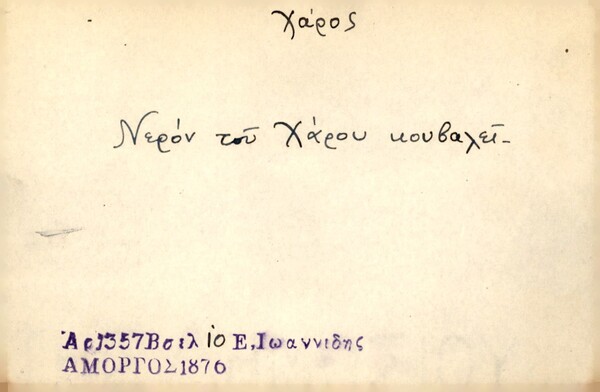 Χάρος
Νερόν τοῦ Χάρου κουβαλεῖ-
Ἀρ1357Βσελ 10 Ε,Ιωαννιδης
ΑΜΟΡΓΟΣ1876